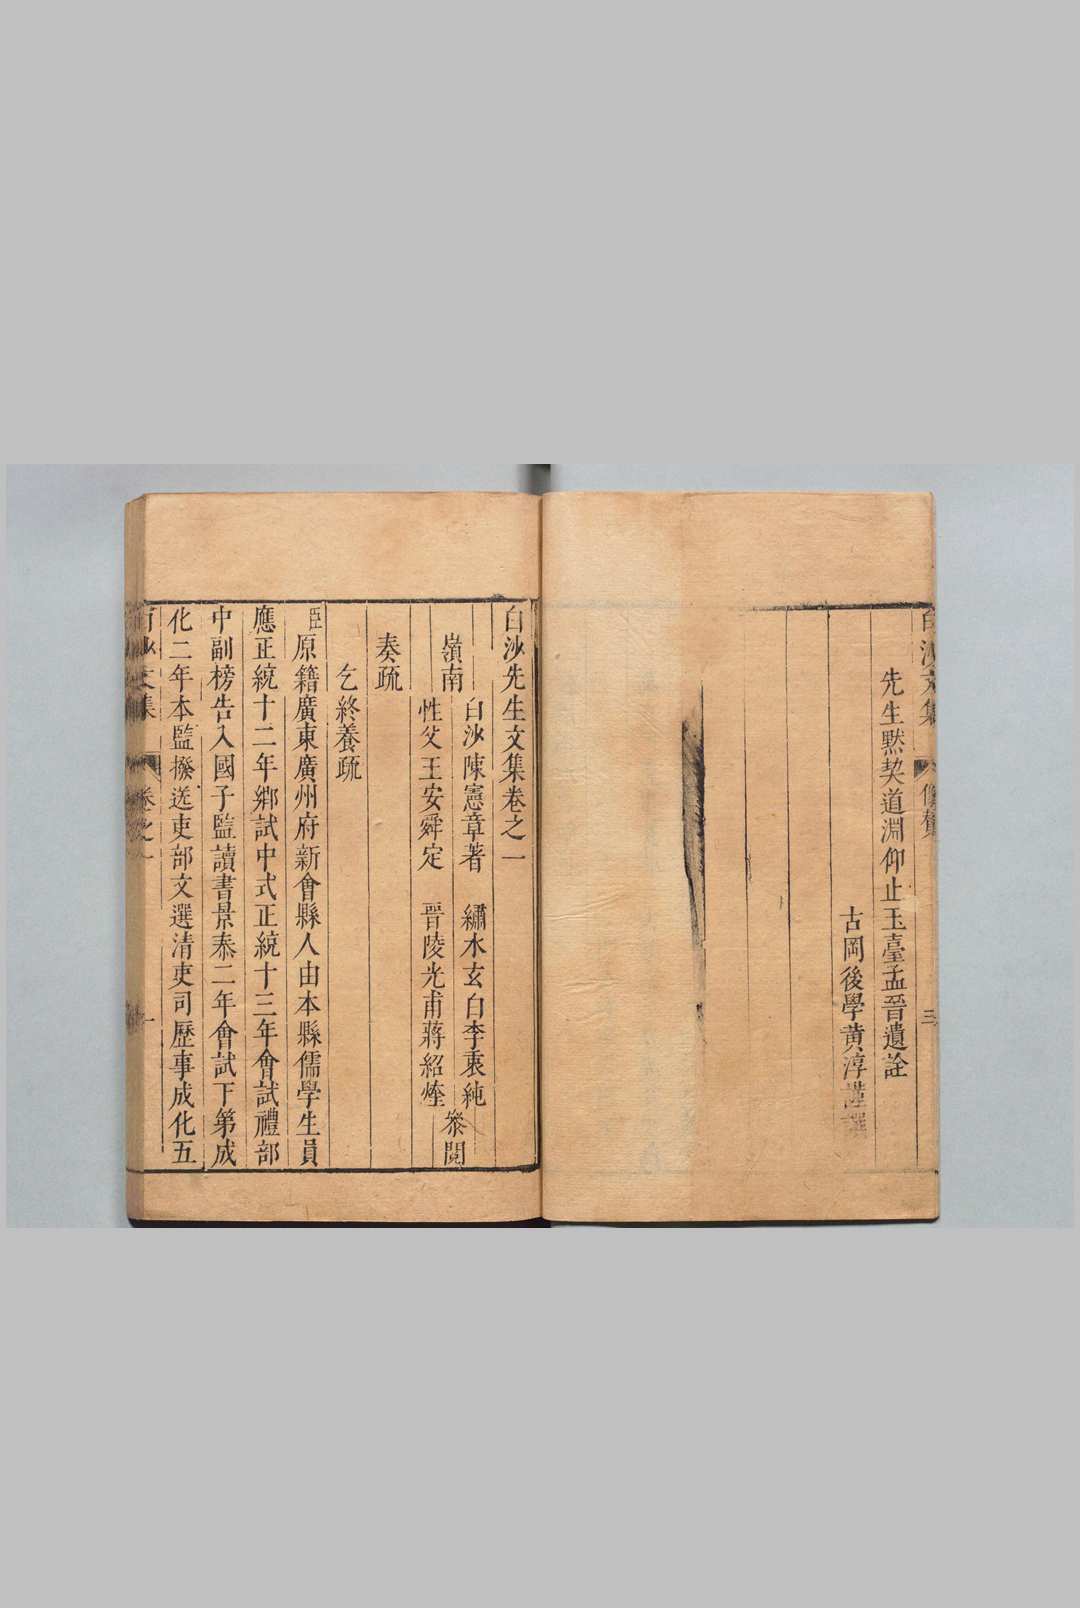 白沙文集 像贊 三
先生黙契道淵仰止玉臺孟晉遺詮
古岡後學黄淳謹譔
白沙先生文集卷之一
嶺南
白沙陳憲章著 繡水玄白李秉純
性父王安舜定 晉陵光甫蔣紹煃
叅閱
奏疏
乞終養疏
臣原籍廣東廣州府新會縣人由本縣儒學生員
應正統十二年鄉試中式正統十三年會試禮部
中副榜告入國子監讀書景泰二年會試下第成
化二年本監撥送吏部文選清吏司歷事成化五
白沙文集 卷之一 一